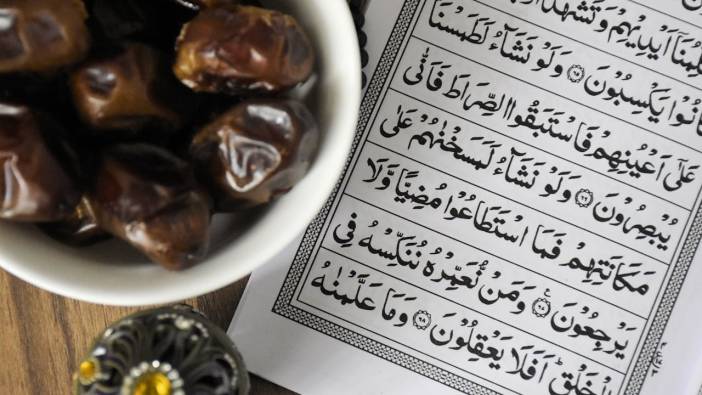 اَيْدِيْهِمْ وَتَشْهَدُ
كَانُوْا يَكْسِبُوْنَ ۝٦٥ وَلَوْ نَشَآءُ لَطَمَسْنَا
عَلٰٓى اَعْيُنِهِمْ فَاسْتَبَقُوا الصِّرَاطَ فَاَنّٰى
يُبْصِرُوْنَ ۝٦٦ وَلَوْ نَشَآءُ لَمَسَخْنٰهُمْ عَلٰى
مَكَانَتِهِمْ فَمَا اسْتَطَاعُوْا مُضِيًّا وَّلَا
يَرْجِعُوْنَ ۝٦٧ وَمَنْ نُّعَمِّرْهُ نُنَكِّسْهُ فِى
الْخَلْقِ ؕ اَفَلَا يَعْقِلُوْنَ ۝٦٨ وَمَا عَلَّمْنٰهُ